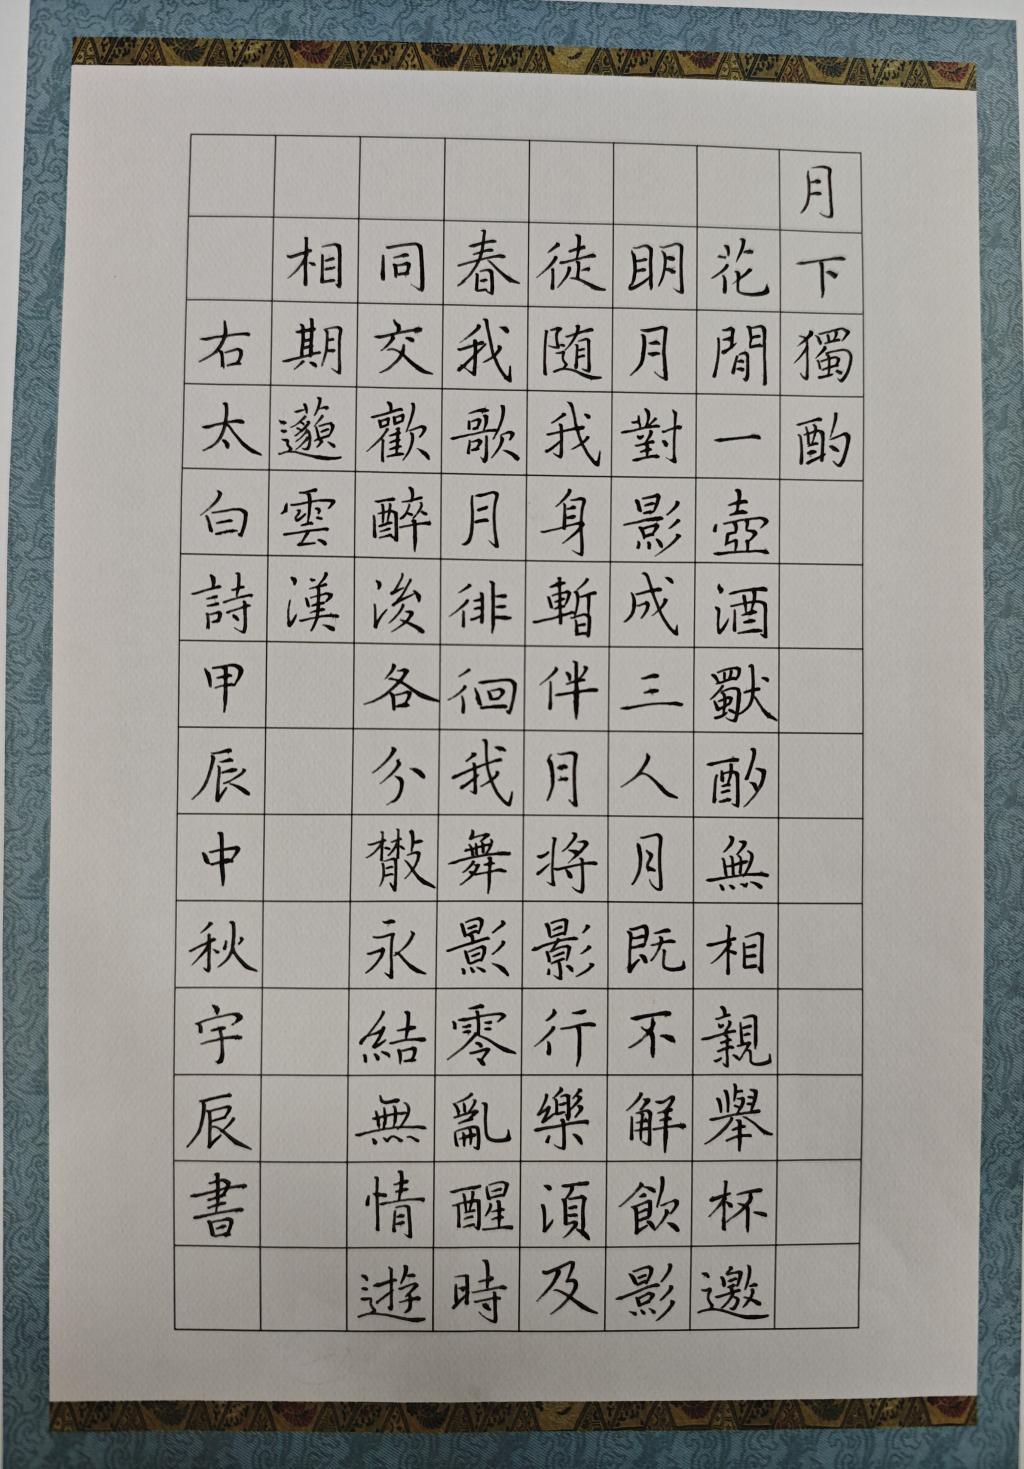 月下獨酌
花間一壺酒獨酌無相親舉杯邀
明月對影成三人月既不解飲影
徒隨我身暫伴月將影行樂須及
春我歌月徘徊我舞影零亂醒時
同交歡醉後各分散永結無情遊
相期邈雲漢
右太白詩甲辰中秋宇辰書